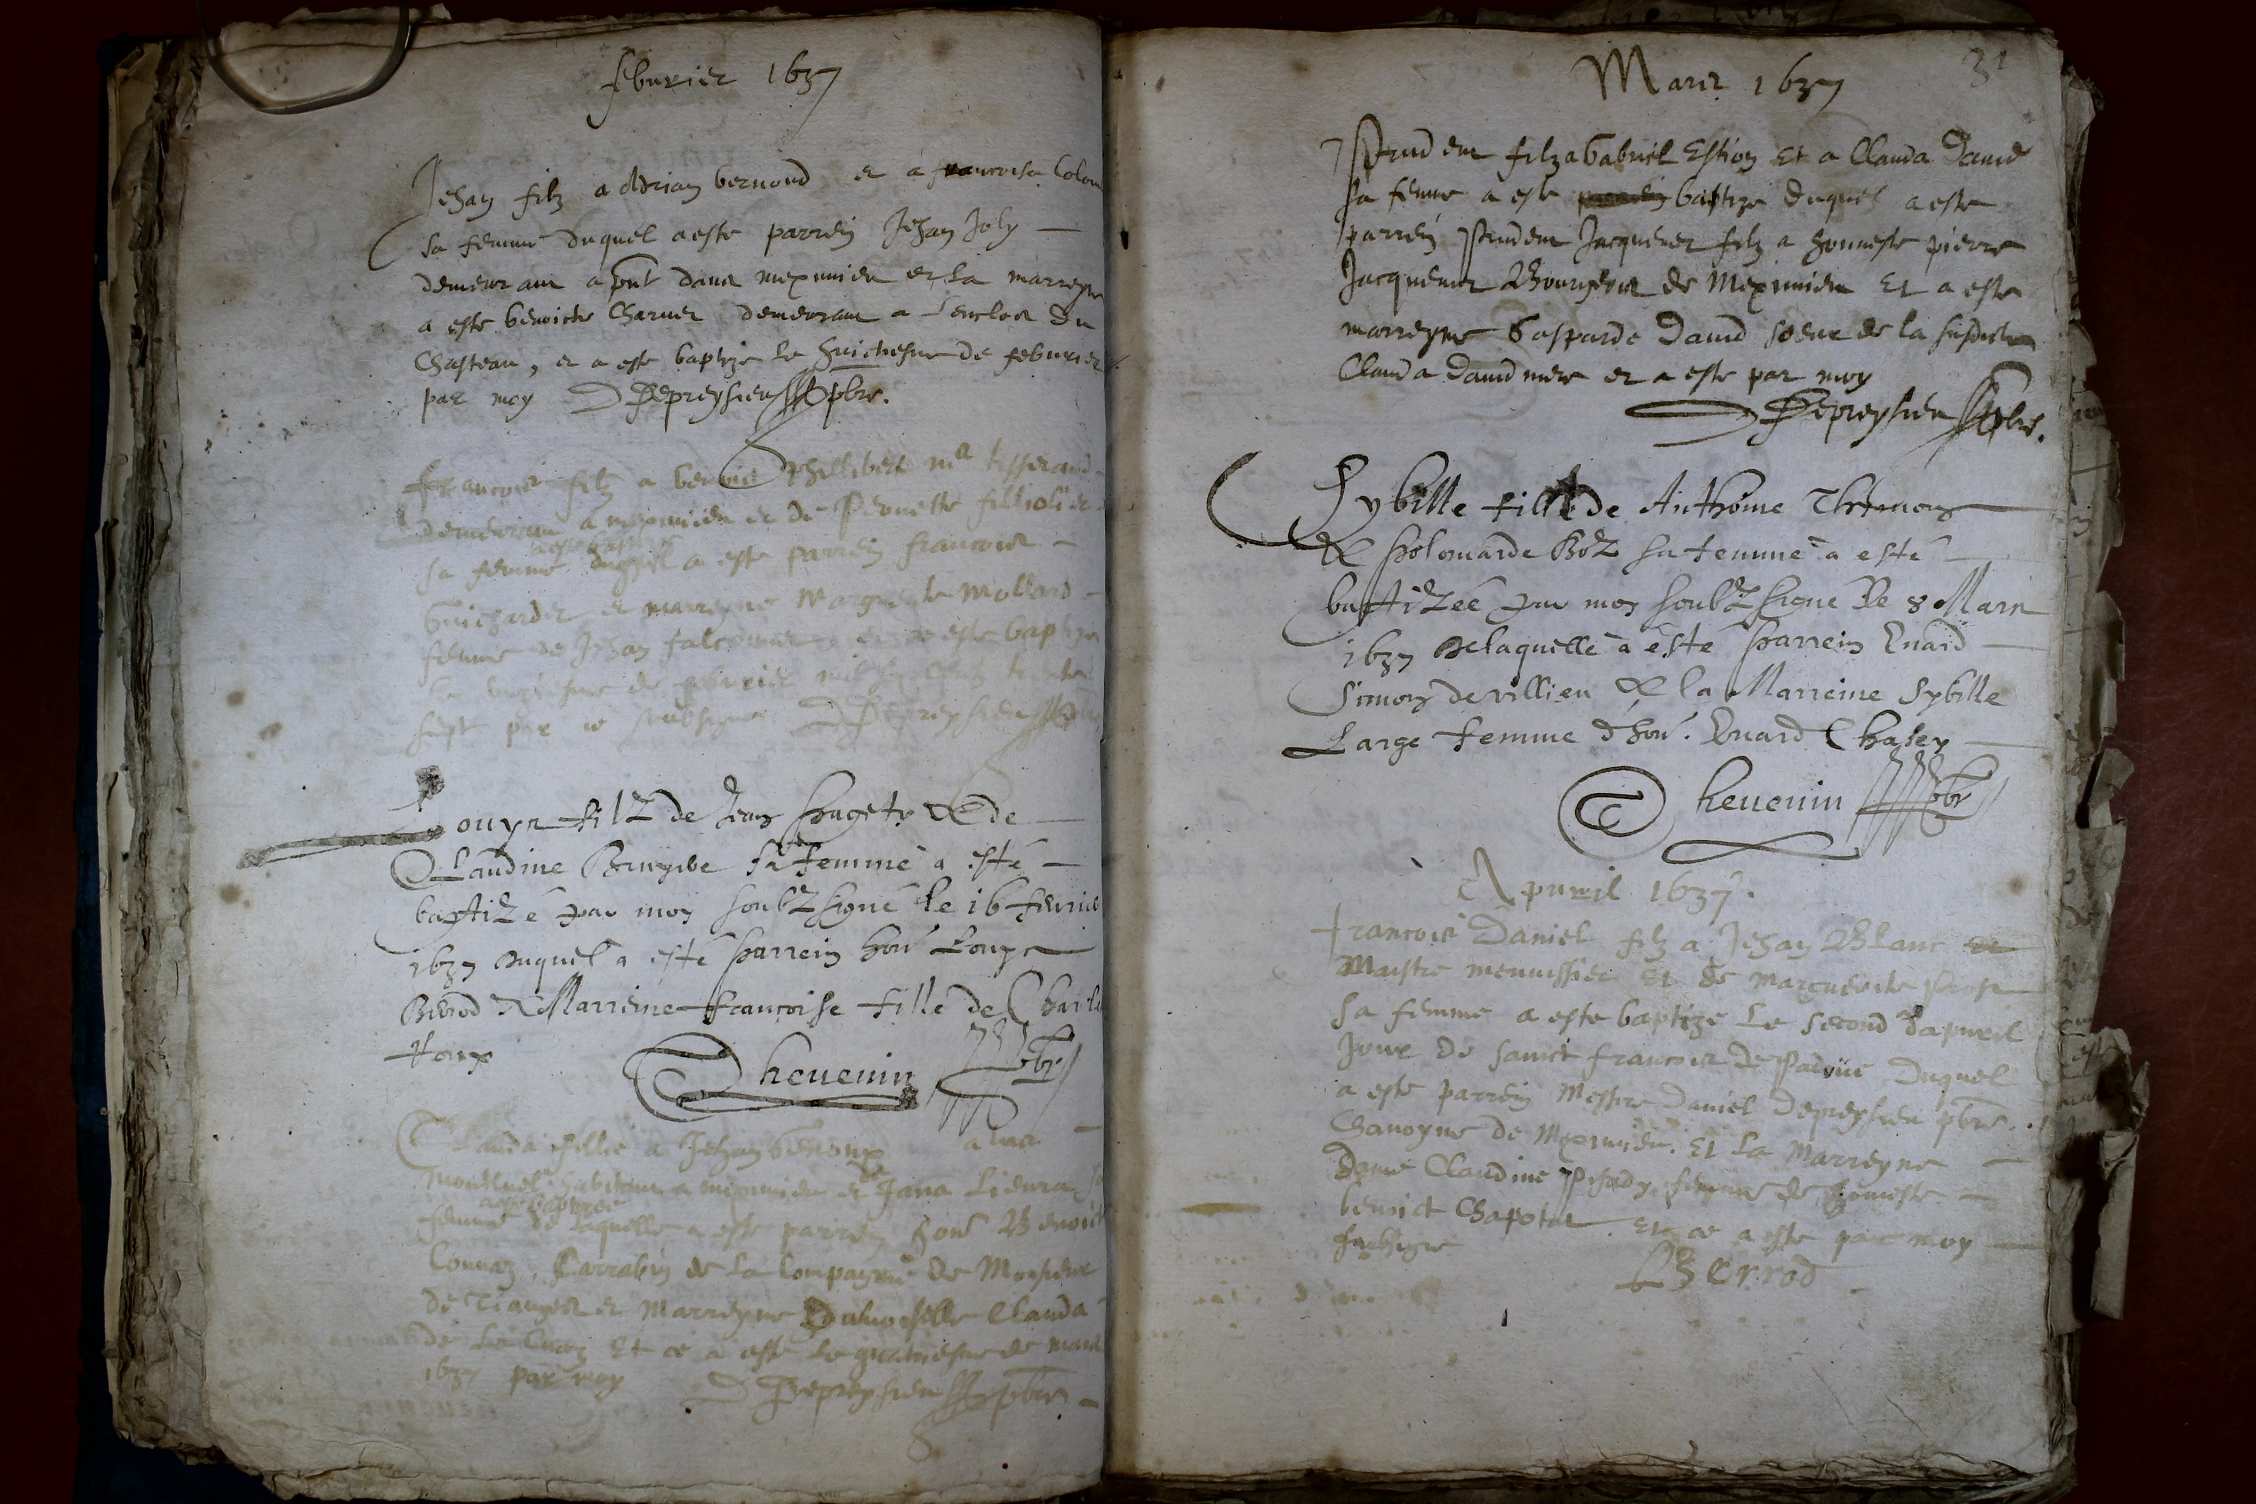 februier 1637
Jehan filz a Adrian bernond et a francoise Colom
sa femme duquel a este parrein Jehan Joly
demeurant a pnt dans meximieu et la marreyne
a este benoicte Charuet demeurant a lenclos du
Chasteau, et a este baptize le huictiesme de februier
par moy D Depreysieu pbre.
francois filz a benoict Phillibert me tisserand
demeurant a meximieu et de Pernette
a este baptize
sa femme duquel a este parrein francois
Guichardet et marreyne Marguerite Mollard
femme de Jehan et a este baptize
le de februier mil six cents trente
sept par le soubsigne D Depreysieu
Louys filz de Jean Huget & de
Claudine sa femme a esté
baptizé par moy soubz signé le 16 feurier
1637 duquel a esté parrein hon Louys
Berod & Marreine francoise fille de Charle
Roux
Theuenin pbr
Clauda fillie a Jehan
montluel habitant a meximieu et de Jana Lieura
a este baptizee
femme de laquelle a este parrein hon Benoict
Carrabin de la Compagnie de Monsieur
de Tianges et Marreyne Damoiselle Clauda
de et ce a este le quatriesme de mars
1637 par moy D Depreysieu pbre
Mars 1637
31
Prudent filz a Gabriel Estion et a Clauda Dauid
sa femme a este baptize duquel a este
parrein Prudent Jacquemet filz a honneste pierre
Jacquemet Bourgeois de Meximieu Et a este
marreyne Gasparde Dauid soeur de la susdicte
Clauda Dauid mere et a este par moy
D Depreysieu pbre.
Sybille fille de Anthoine
& Polomarde Boz sa femme a esté
baptizée par moy soubz signé le 8 Mars
1637 delaquelle a esté parrein Euard
Simon de villieu & la Marreine Sybille
Large femme d'hon. Euard Chasey
Theuenin pbr
Apuril 1637.
francois Daniel filz a Jehan Blanc
Maistre menuissier et de Marguerite
sa femme a este baptize le second dapuril
Jour de sainct francois de Paoüe duquel
a este parrein Messire Daniel Depreysieu pbre.
Chanoyne de Meximieu. Et la Marreyne
Dame Claudine femme de honneste
benoict Chapotat Et ce a este par moy
subsigne
Berrod